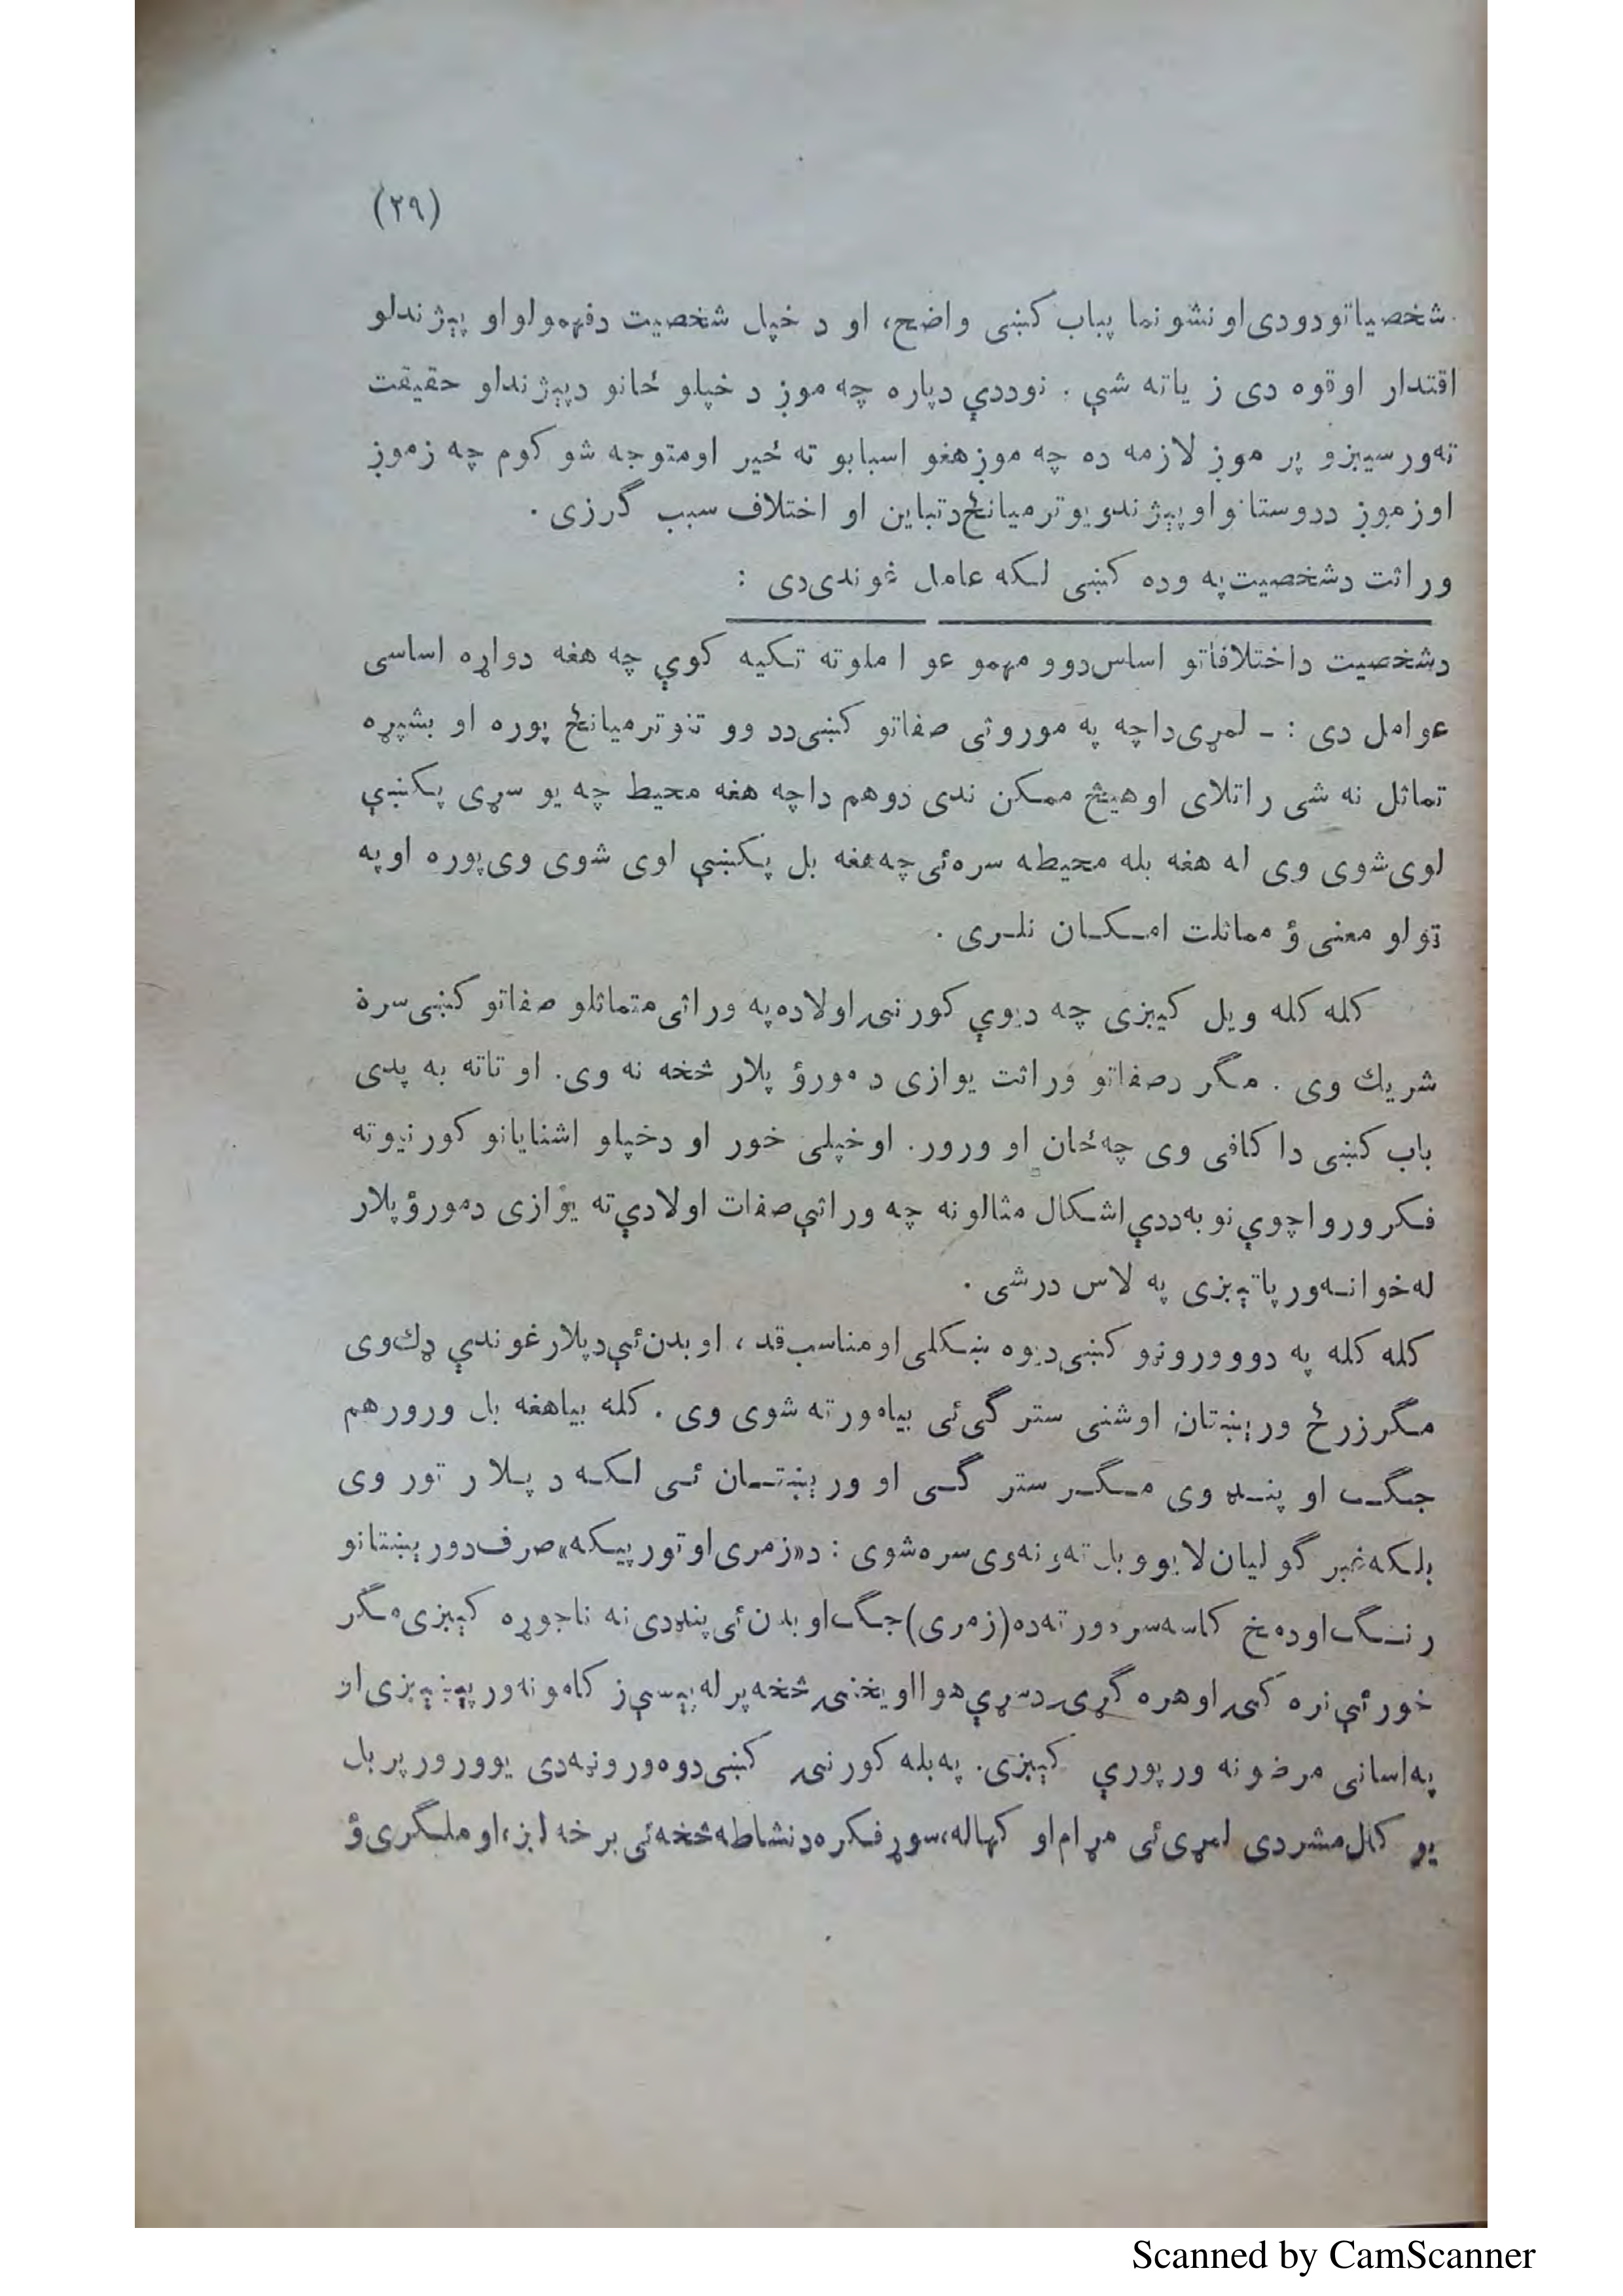 (۲۹)
شخصیاتو دودی او نشو نما پباب کښی واضح، او د خپل شخصیت دفهمولو او پېژندلو
اقتدار او قوه دی زیاته شې . نوددې دپاره چه موږ د خپلو ځانو دپېژندلو حقیقت
ته ورسیږو پر موږ لازمه ده چه موږ هغو اسبابو ته ځیر او متوجه شو کوم چه زموږ
او زموږ ددوستانو او پېژندویو ترمیانځ دتباین او اختلاف سبب گرزی .
وراثت دشخصیت په وده کښی لکه عامل غوندی دی :
دشخصیت داختلافاتو اساس دوو مهمو عو املو ته تکیه کوې چه هغه دواړه اساسی
عوامل دی : ـ لمړی داچه په موروثی صفاتو کښی دد وو تنو ترمیانځ پوره او بشپړه
تماثل نه شی راتلای او هیڅ ممکن ندی دوهم داچه هغه محیط چه یو سړی پکښې
لوی شوی وی له هغه بله محیطه سره ئی چه هغه بل پکښې لوی شوی وی پوره او په
ټولو معنی ؤ مماثلت امکان نلری .
کله کله ویل کیږی چه دیوې کورنۍ اولاده په وراثی متماثلو صفاتو کښی سره
شریك وی . مگر دصفاتو وراثت یوازی د مورؤ پلار څخه نه وی. او تاته به پدی
باب کښی دا کافی وی چه ځان او ورور. او خپلی خور او دخپلو اشنایانو کورنیو ته
فکر ورواچوې نو به ددې اشکال مثالو نه چه وراثې صفات اولادې ته یوازی دمورؤ پلار
له خوا نه ورپاتېږی په لاس درشی .
کله کله په دوو ورونو کښی دیوه ښکلی او مناسب قد ، او بدن ئې دپلار غوندې ډك وی
مگر زرځ ورېښتان او شنی سترگی ئی بیا مور ته شوی وی . کله بیا هغه بل ورور هم
جگ او پنډ وی مگر سترگی او ورېښتان ئی لکه د پلار تور وی
بلکه غبر گولیان لا یو و بل ته ورته نه وی سره شوی : د «زمری او تور پیکه» صرف دورېښتانو
رنگ او دمخ کاسه سر دورته ده (زمری) جگ او بدن ئی پنډ دی نه ناجوړه کېږی مگر
خور ئې نره کۍ او هره گړۍ دسړې هوا او یخنۍ څخه پر له پسې زکامونه ورپېښېږی او
په اسانی مرضونه ورپورې کېږی. په بله کورنۍ کښی دوه ورونه دی یو ورور پر بل
یو کال مشر دی لمړی ئی مړام او کهاله، سوړ فکره دنشاطه څخه ئی برخه لږ، او ملگری ؤ
Scanned by CamScanner